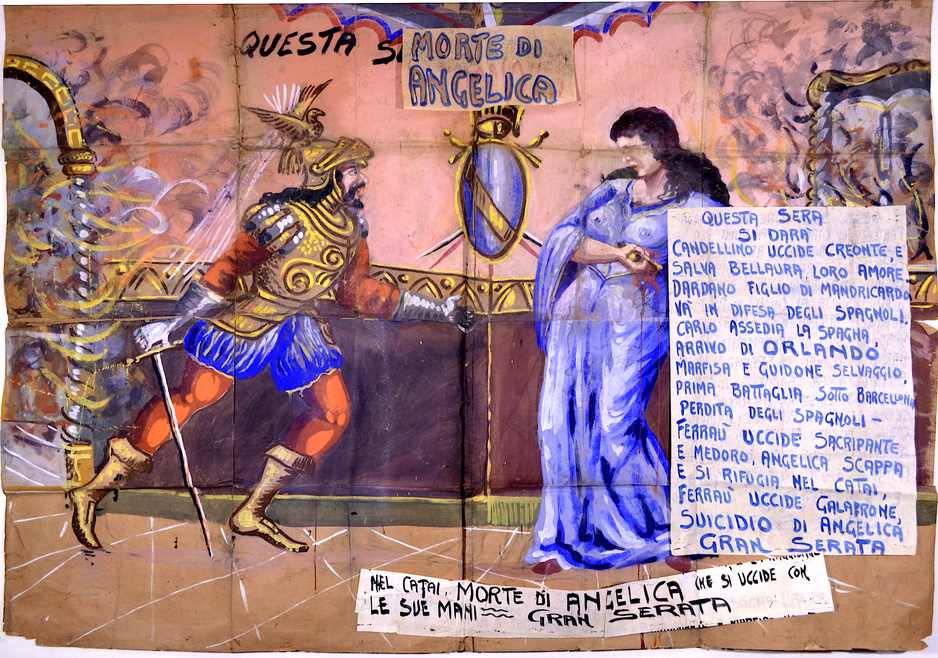 QUESTA
MORTE DI
ANGELICA
QUESTA SERA
SI DARÀ
CANDELLINO UCCIDE CREONTE, E
SALVA BELLAURA, LORO AMORE
DARDANO FIGLIO DI MANDRICARDO
VÀ IN DIFESA DEGLI SPAGNOLI.
CARLO ASSEDIA LA SPAGNA,
ARRIVO DI ORLANDO
MARFISA E GUIDONE SELVAGGIO,
PRIMA BATTAGLIA SOTTO BARCELLONA
PERDITA DEGLI SPAGNOLI –
FERRAÙ UCCIDE SACRIPANTE
E MEDORO, ANGELICA SCAPPA
E SI RIFUGIA NEL CATAI,
FERRAÙ UCCIDE GALAFRONE,
SUICIDIO DI ANGELICA
GRAN SERATA
NEL CATAI, MORTE DI ANGELICA CHE SI UCCIDE CON
LE SUE MANI GRAN SERATA